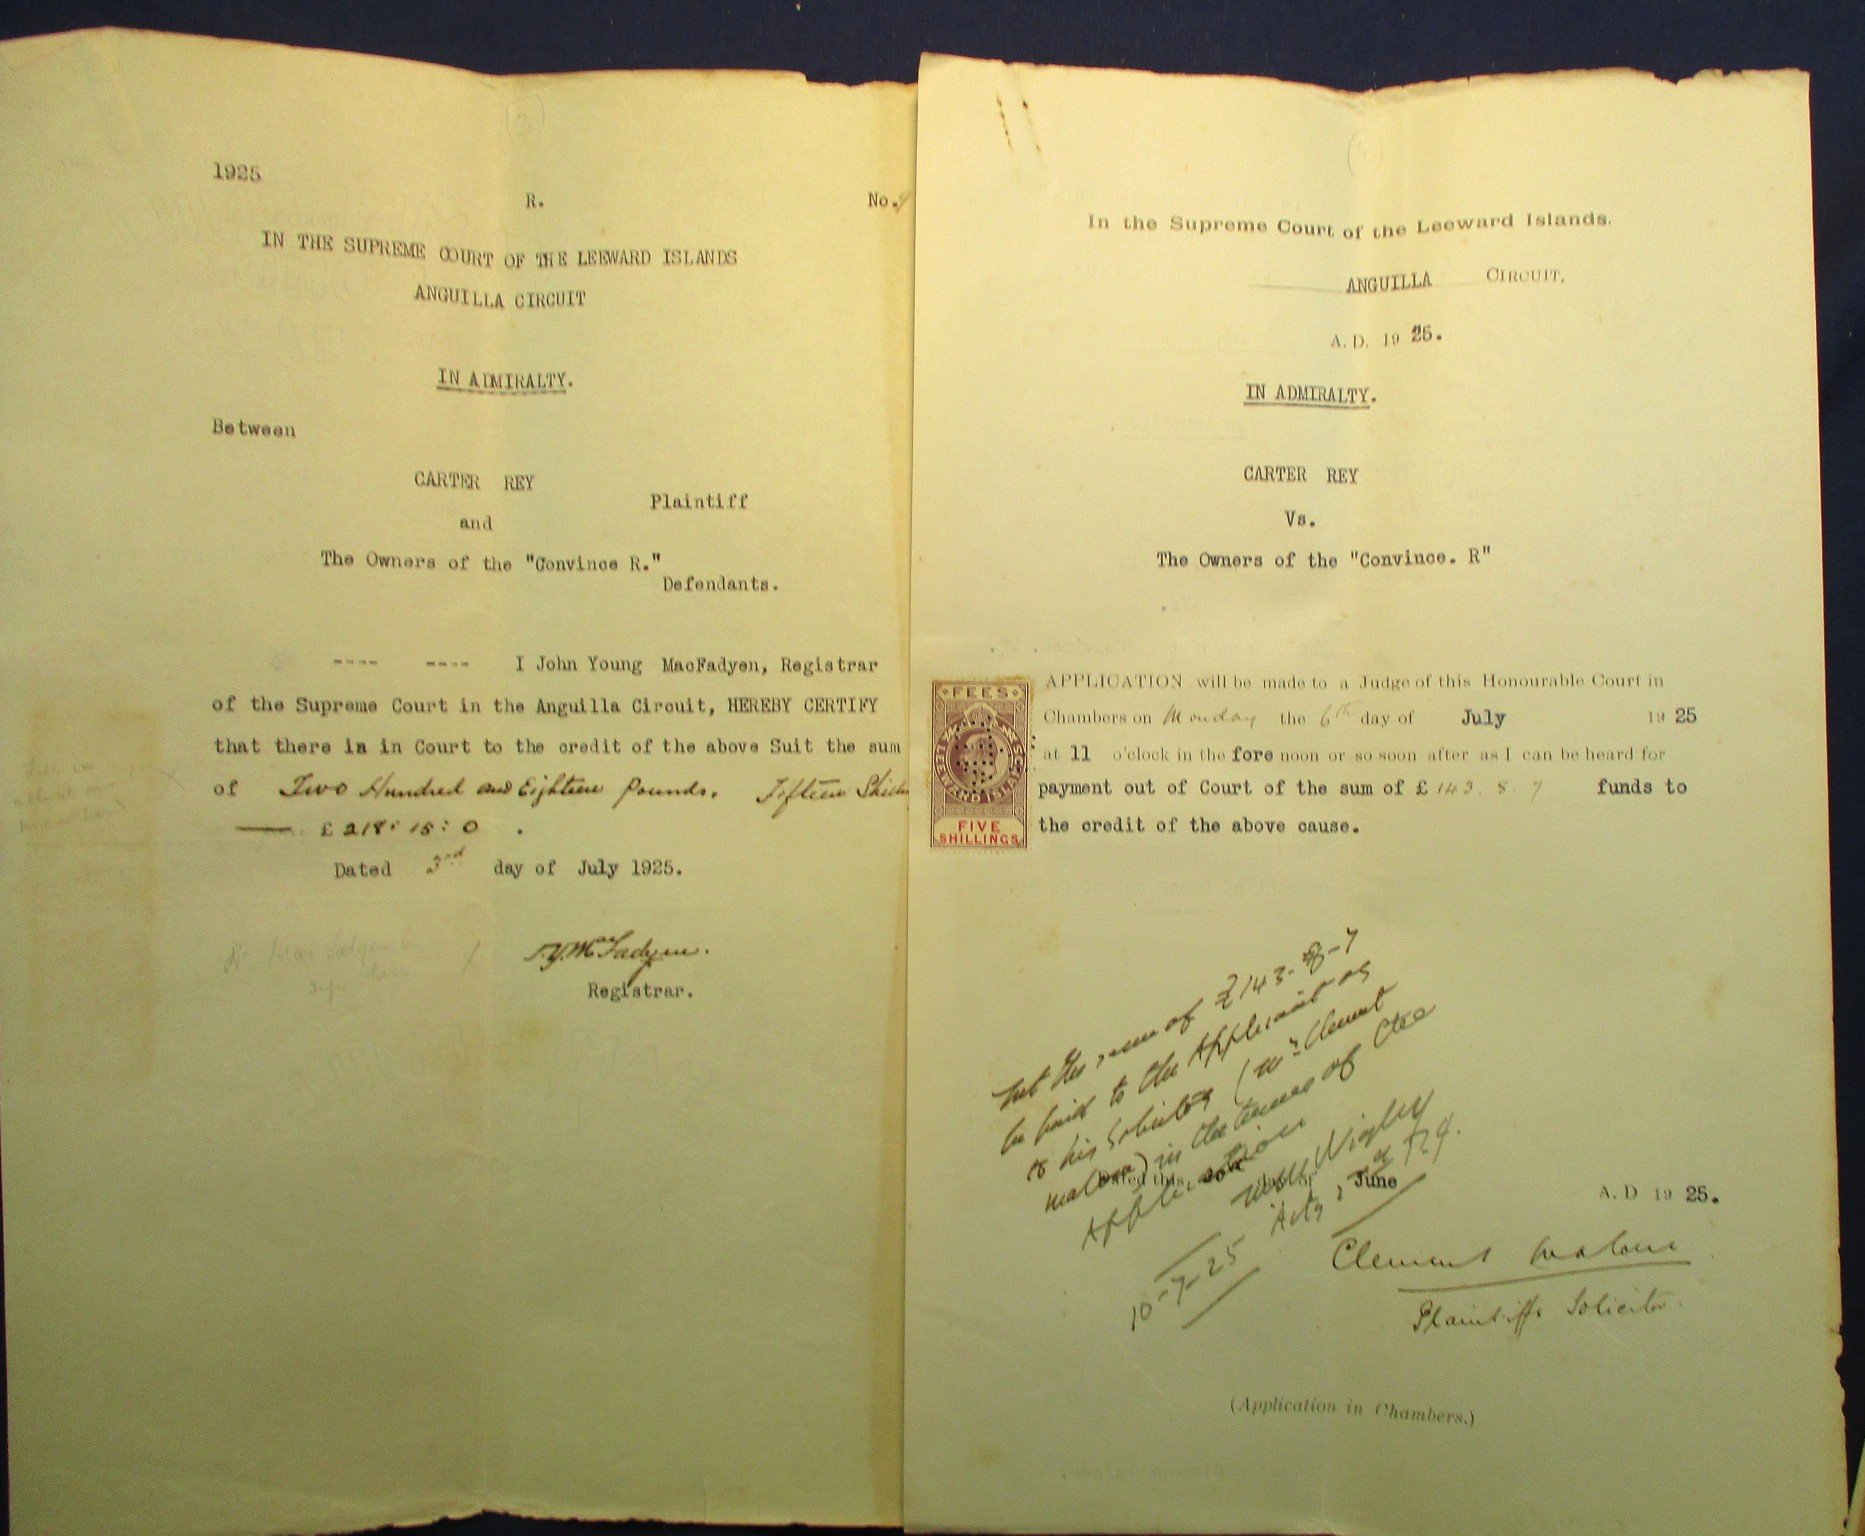 (3)
1925
R.
No. 9
IN THE SUPREME COURT OF THE LEEWARD ISLANDS
ANGUILLA CIRCUIT
IN ADMIRALTY.
Between
CARTER REY
Plaintiff
and
The Owners of the "Convince R."
Defendants.
---- ---- I John Young MacFadyen, Registrar
of the Supreme Court in the Anguilla Circuit, HEREBY CERTIFY
that there is in Court to the credit of the above Suit the sum
of Two Hundred and Eighteen Pounds. Fifteen
£218: 15: 0 .
Dated 3rd day of July 1925.
J.Y. MacFadyen.
Registrar.
In the Supreme Court of the Leeward Islands.
ANGUILLA CIRCUIT,
A. D. 19 25.
IN ADMIRALTY.
CARTER REY
Vs.
The Owners of the "Convince. R"
FEES
LEEWARD ISLANDS
FIVE
SHILLINGS
APPLICATION will be made to a Judge of this Honourable Court in
Chambers on Monday the 6th day of July 19 25
at 11 o'clock in the fore noon or so soon after as I can be heard for
payment out of Court of the sum of £ 143. 8. 7 funds to
the credit of the above cause.
Let the sum of £143-8-7
be paid to the Applicant or
to his Solicitor (Mr Clement
Malone) in the terms of the
Application
Wigley
10-7-25
Dated this June A. D 19 25.
Clement Malone
Plaintiffs Solicitor.
(Application in Chambers.)